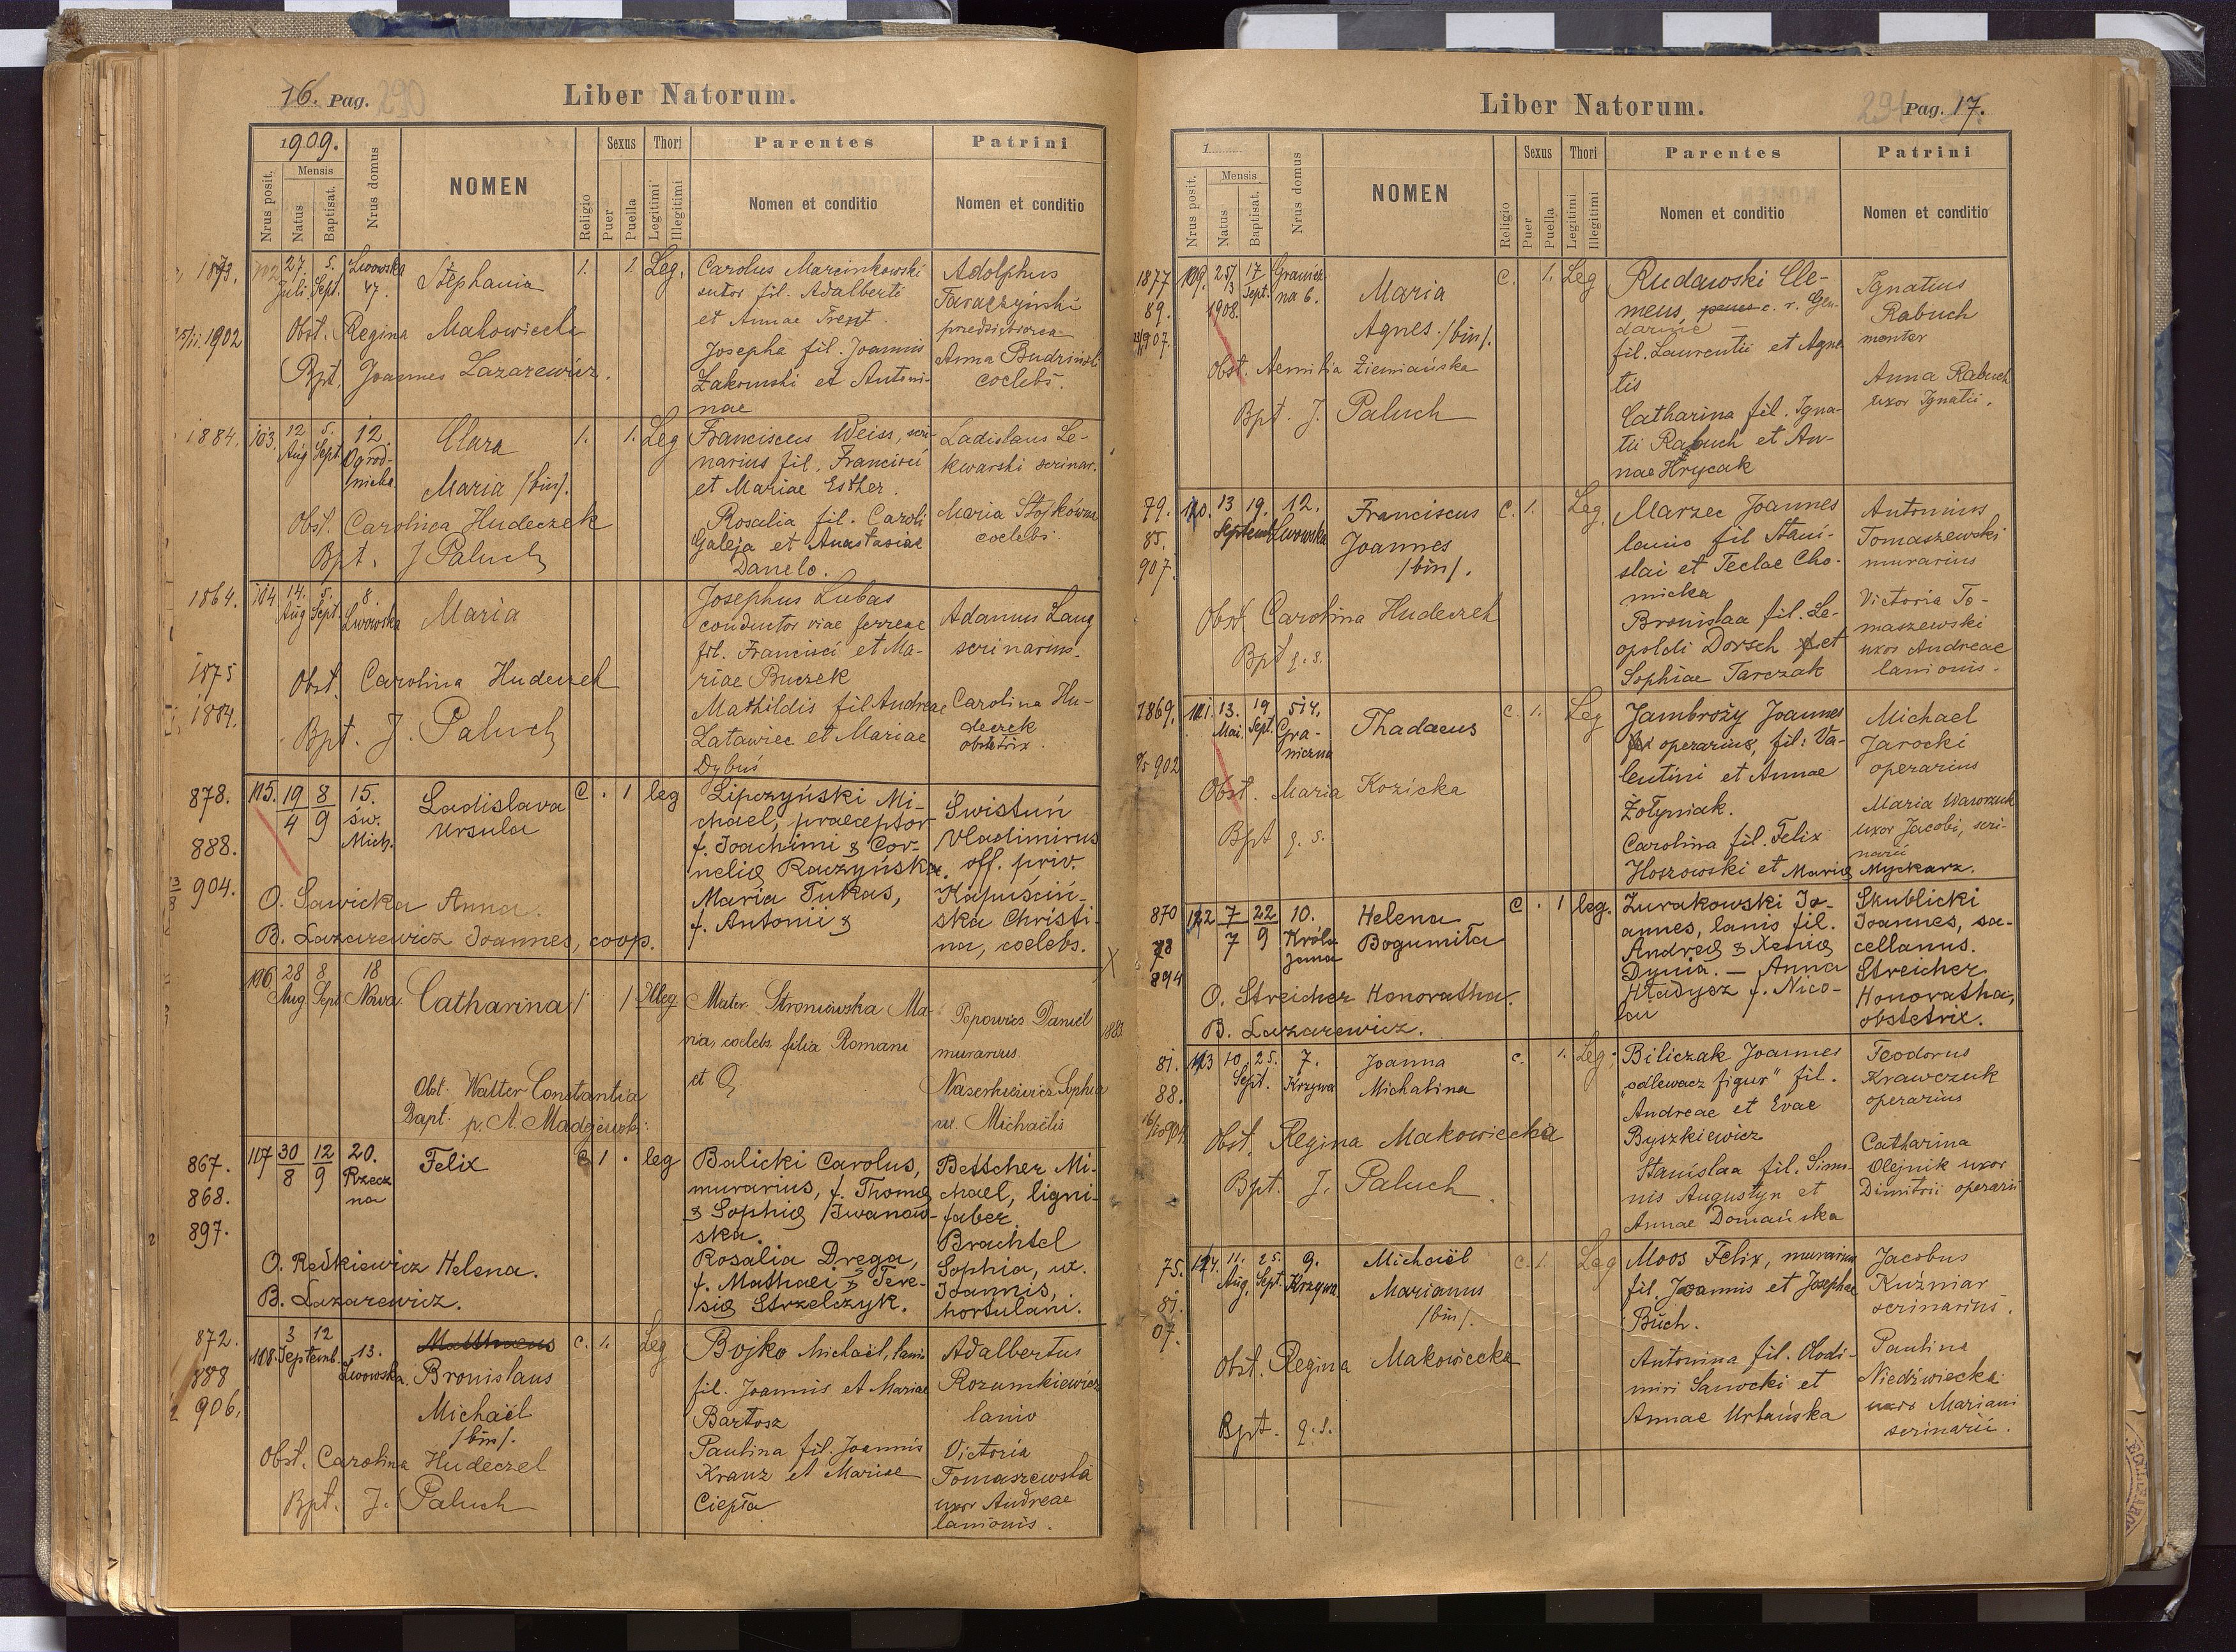 16. Pag. 290
Liber Natorum.
1909.
Nrus posit.
Mensis
Natus
Baptisat.
Nrus domus
NOMEN
Religio
Sexus
Puer
Puella
Thori
Legitimi
Illegitimi
Parentes
Nomen et conditio
Patrini
Nomen et conditio
1873.
1902
102 27. Juli 5. Sept. Lwowska 47.
Stephania
1. 1. Leg.
Carolus Marcinkowski
sutor fil. Adalberti
et Annae Trent.
Josepha fil. Joannis
Żakowski et Antoni-
nae
Adolphus
Taraczyński
przedsiębiorca
Anna Budzińska
coelebs.
Obst. Regina Makowiecka
Bpt. Joannes Lazarewicz.
1884.
103. 12 Aug 5. Sept. 12. Ogrod-
nicka
Clara
Maria /bin/.
1. 1. Leg
Franciscus Weiss, scri-
narius fil. Francisci
et Mariae Esther.
Rosalia fil. Caroli
Galeja et Anastasiae
Danelo.
Ladislaus Le-
kwarski scrinar.
Maria Stojkówna
coelebs.
Obst. Carolina Hudeczek
Bpt. J Paluch
1864.
1875
1884.
104 14. Aug 5. Sept. 8. Lwowska
Maria
Josephus Lubas
conductor viae ferreae
fil. Francisci et Ma-
riae Buczek
Mathildis fil Andreae
Latawiec et Mariae
Dybuś
Adamus Lang
scrinarius.
Carolina Hu-
deczek
obstetrix.
Obst. Carolina Hudeczek
Bpt. J. Paluch
878.
888.
904.
105. 19/4 8/9 15. św. Mich.
Ladislava
Ursula
C . 1 leg
Lipczyński Mi-
chael, praeceptor
f. Joachimi & Cor-
nelię Raczyńska.
Maria Tukas,
f. Antonii &
Świstuń
Vladimirus
off. priv.
Kapuściń-
ska Christi-
na, coelebs.
O. Sawicka Anna.
B. Lazarewicz Joannes, coop.
106 28 Aug 8 Sept 18 Nowa
Catharina
1 1 Illeg
Mater Stroniowska Ma-
ria, coelebs filia Romani
et
Popowicz Daniel
murarius.
Naserkiewicz Sophia
ux. Michaëlis
Obst. Walter Constantia
Bapt. p. A. Madejewski
867.
868.
897.
107 30/8 12/9 20. Rzecz
na
Felix
C 1 . leg
Balicki Carolus,
murarius, f. Thomę
& Sophię Iwanow-
ska.
Rosalia Drega,
f. Mathaei & Tere-
się Strzelczyk.
Bettcher Mi-
chael, ligni-
faber
Brachtel
Sophia, ux.
Joannis,
hortulani.
O. Redkiewicz Helena.
B. Lazarewicz.
872.
888
906.
108. 3 12 Septemb. 13. Lwowska.
Matthaeus
Bronislaus
Michaël
/bin/.
C. 1. Leg
Bojko Michaël, lanio
fil. Joannis et Mariae
Bartosz
Paulina fil. Joannis
Kranz et Mariae
Ciepła
Adalbertus
Rozumkiewicz
lanio
Victoria
Tomaszewska
uxor Andreae
lanionis.
Obst. Carolina Hudeczek
Bpt. J. Paluch
Liber Natorum.
294 Pag. 17.
1
Nrus posit.
Mensis
Natus
Baptisat.
Nrus domus
NOMEN
Religio
Sexus
Puer
Puella
Thori
Legitimi
Illegitimi
Parentes
Nomen et conditio
Patrini
Nomen et conditio
1877
89.
907.
109. 25/3 1908. 17 Sept. Granicz-
na 6.
Maria
Agnes /bin/.
C. 1. Leg
Rudawski Cle-
mens, c. r. Gen-
darme
fil. Laurentii et Agne-
tis
Catharina fil. Igna-
tii Rabuch et An-
nae Hrycak
Ignatius
Rabuch
monter
Anna Rabuch
uxor Ignatii.
Obst. Aemilia Ziemiańska
Bpt. J. Paluch
79.
85.
907.
110. 13 19. Septemb. 12. Lwowska
Franciscus
Joannes
/bin/.
C. 1. Leg.
Marzec Joannes
lanio fil Stani-
slai et Teclae Cho-
micka
Bronislaa fil. Le-
opoldi Dorsch et
Sophiae Tarczak
Antonius
Tomaszewski
murarius
Victoria To-
maszewski
uxor Andreae
lanionis.
Obst. Carolina Hudeczek
Bpt q. s.
1869.
902
111. 13. Mai. 19 Sept. 514. Gra-
niczna
Thadaeus
C. 1. Leg
Jambroży Joannes
operarius, fil: Va-
lentini et Annae
Żołyniak.
Carolina fil. Felix
Hoszowski et Marię Myckarz.
Michael
Jarocki
operarius
Maria Wawrzuk
uxor Jacobi, scri-
narii
Obst. Maria Kozicka
Bpt q. s.
870
78
894
112 7/7 22/9 10. Króla
Jana
Helena
Bogumiła
C . 1 leg.
Żurakowski Jo-
annes, lanis fil.
Andreę & Xenię
Dynia. — Anna
Hładysz f. Nico-
lai
Skublicki
Joannes, sa-
cellanus.
Streicher
Honoratha,
obstetrix.
O. Streicher Honoratha.
B. Lazarewicz.
81.
88.
113 10 25. Sept. 7. Krzywa
Joanna
Michalina
C. 1. Leg.
Biliczak Joannes
„odlewacz figur" fil.
Andreae et Evae
Byszkiewicz
Stanislaa fil. Simo-
nis Augustyn et
Annae Domańska
Teodorus
Krawczuk
operarius
Catharina
Olejnik uxor
Dimitrii operarii
Obst. Regina Makowiecka
Bpt. J. Paluch.
75.
81.
07.
114. 11. Aug. 25. Sept. 9. Krzywa
Michaël
Marianus
/bin/.
C. 1. Leg
Moos Felix, murarius
fil. Joannis et Josephae
Büch.
Antonina fil. Wlodi-
miri Sanocki et
Annae Urbańska
Jacobus
Kuźniar
scrinarius.
Paulina
Niedźwiecka
uxor Mariani
scrinarii.
Obst. Regina Makowiecka
Bpt. q. s.